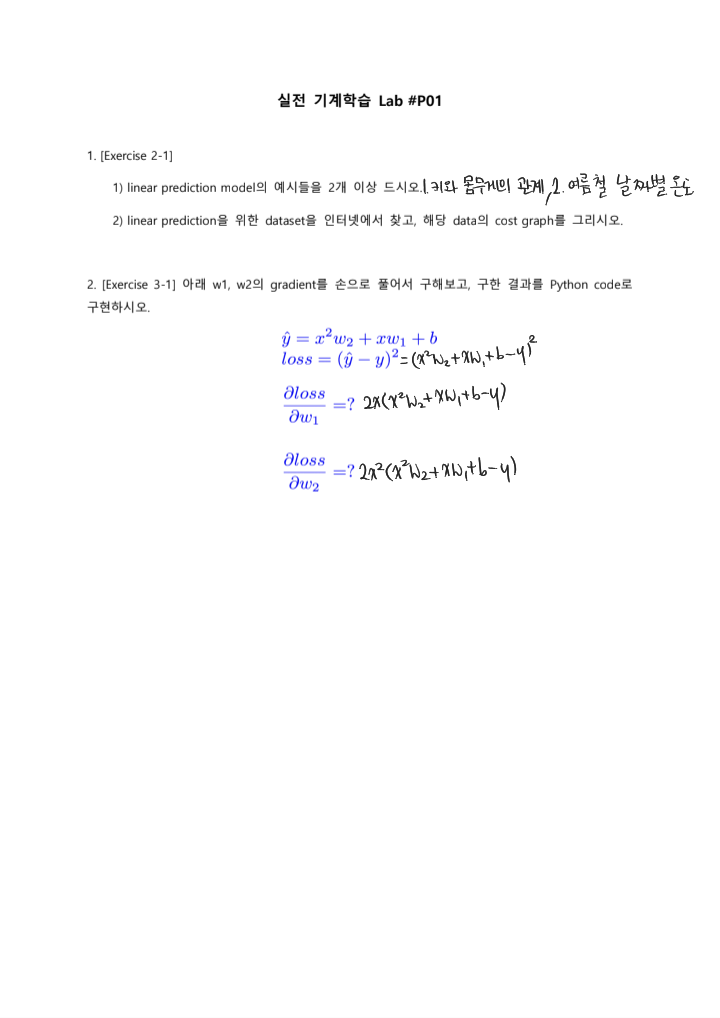 실전 기계학습 Lab #P01
1. [Exercise 2-1]
1) linear prediction model의 예시들을 2개 이상 드시오. 1. 키와 몸무게의 관계, 2. 여름철 날짜별 온도
2) linear prediction을 위한 dataset을 인터넷에서 찾고, 해당 data의 cost graph를 그리시오.
2. [Exercise 3-1] 아래 w1, w2의 gradient를 손으로 풀어서 구해보고, 구한 결과를 Python code로
구현하시오.
ŷ = x²w₂ + xw₁ + b
loss = (ŷ − y)² = (x²w₂+xw₁+b−y)²
∂loss/∂w₁ =? 2x(x²w₂+xw₁+b−y)
∂loss/∂w₂ =? 2x²(x²w₂+xw₁+b−y)